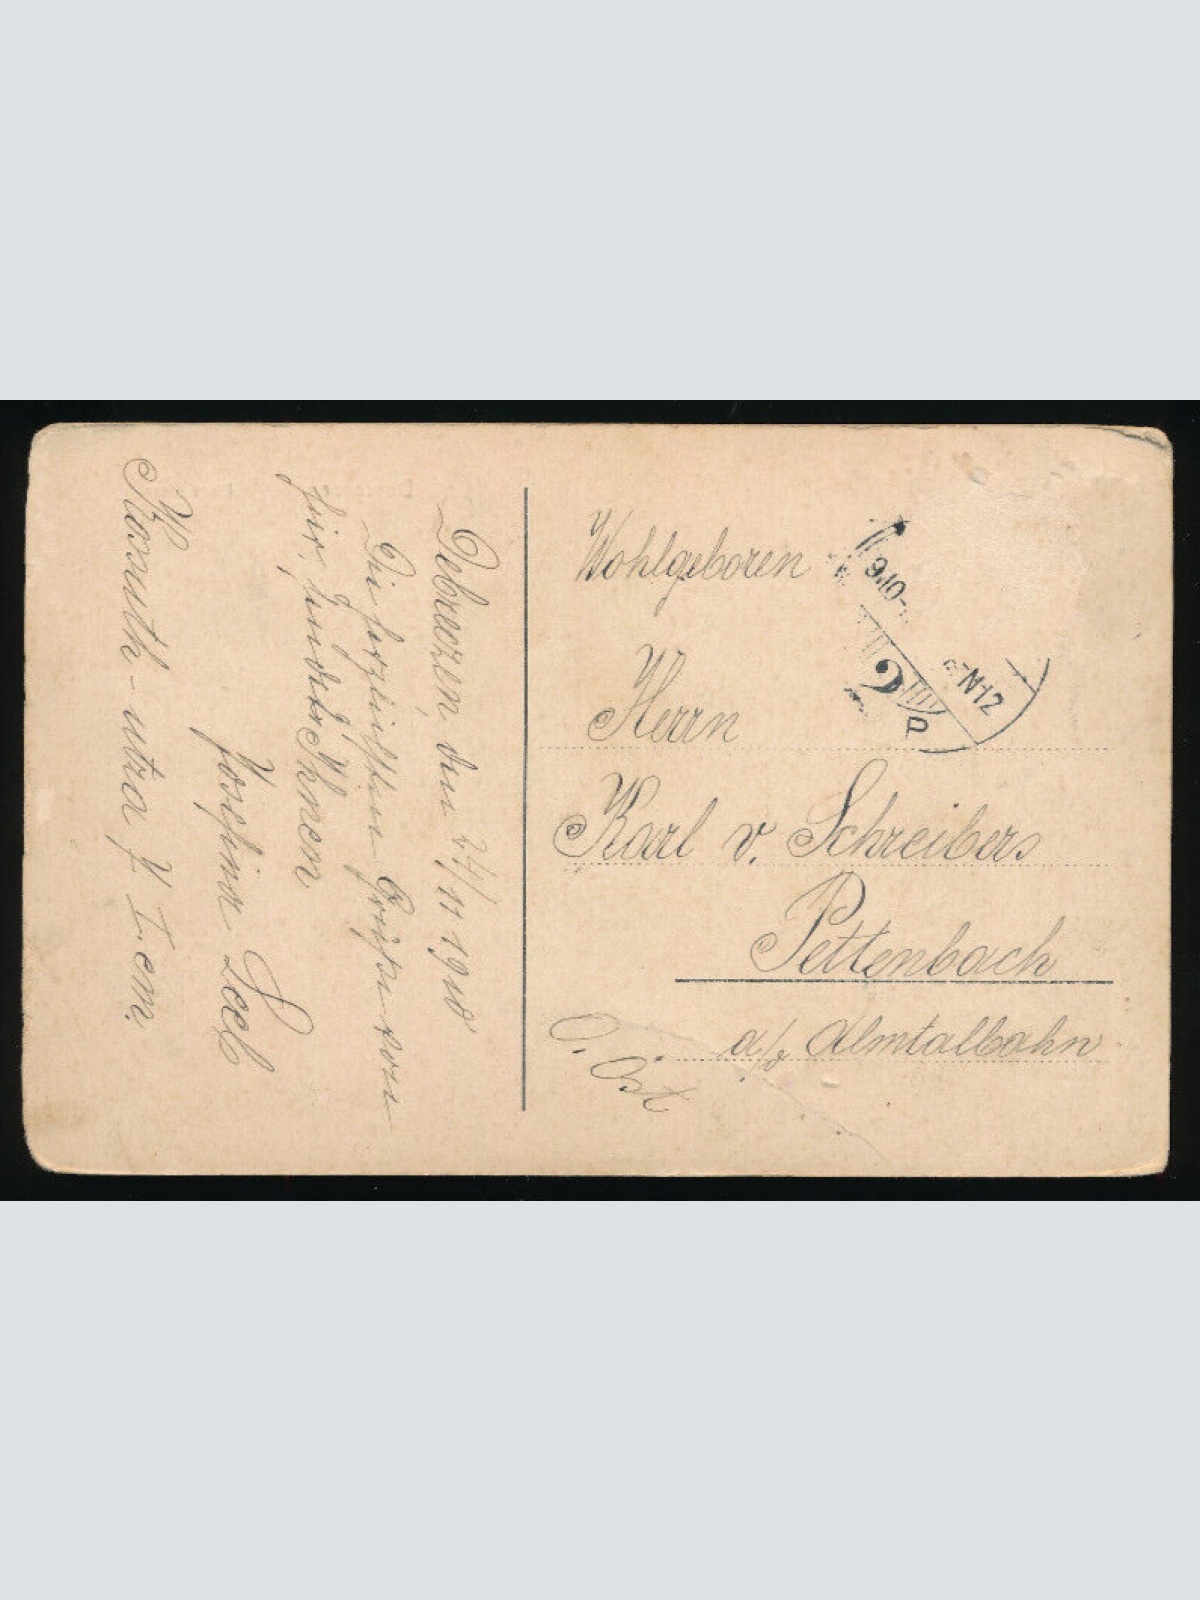 Debreczen, den 24/11 1910
Die herzlichsten Grüße von
Ihnen
Josefine
Kossuth-utza 7. I em.
Wohlgeboren
Herrn
Karl v. Schreibers
Pettenbach
a/d Almtalbahn
O. Öst
910-
-N12
2
a